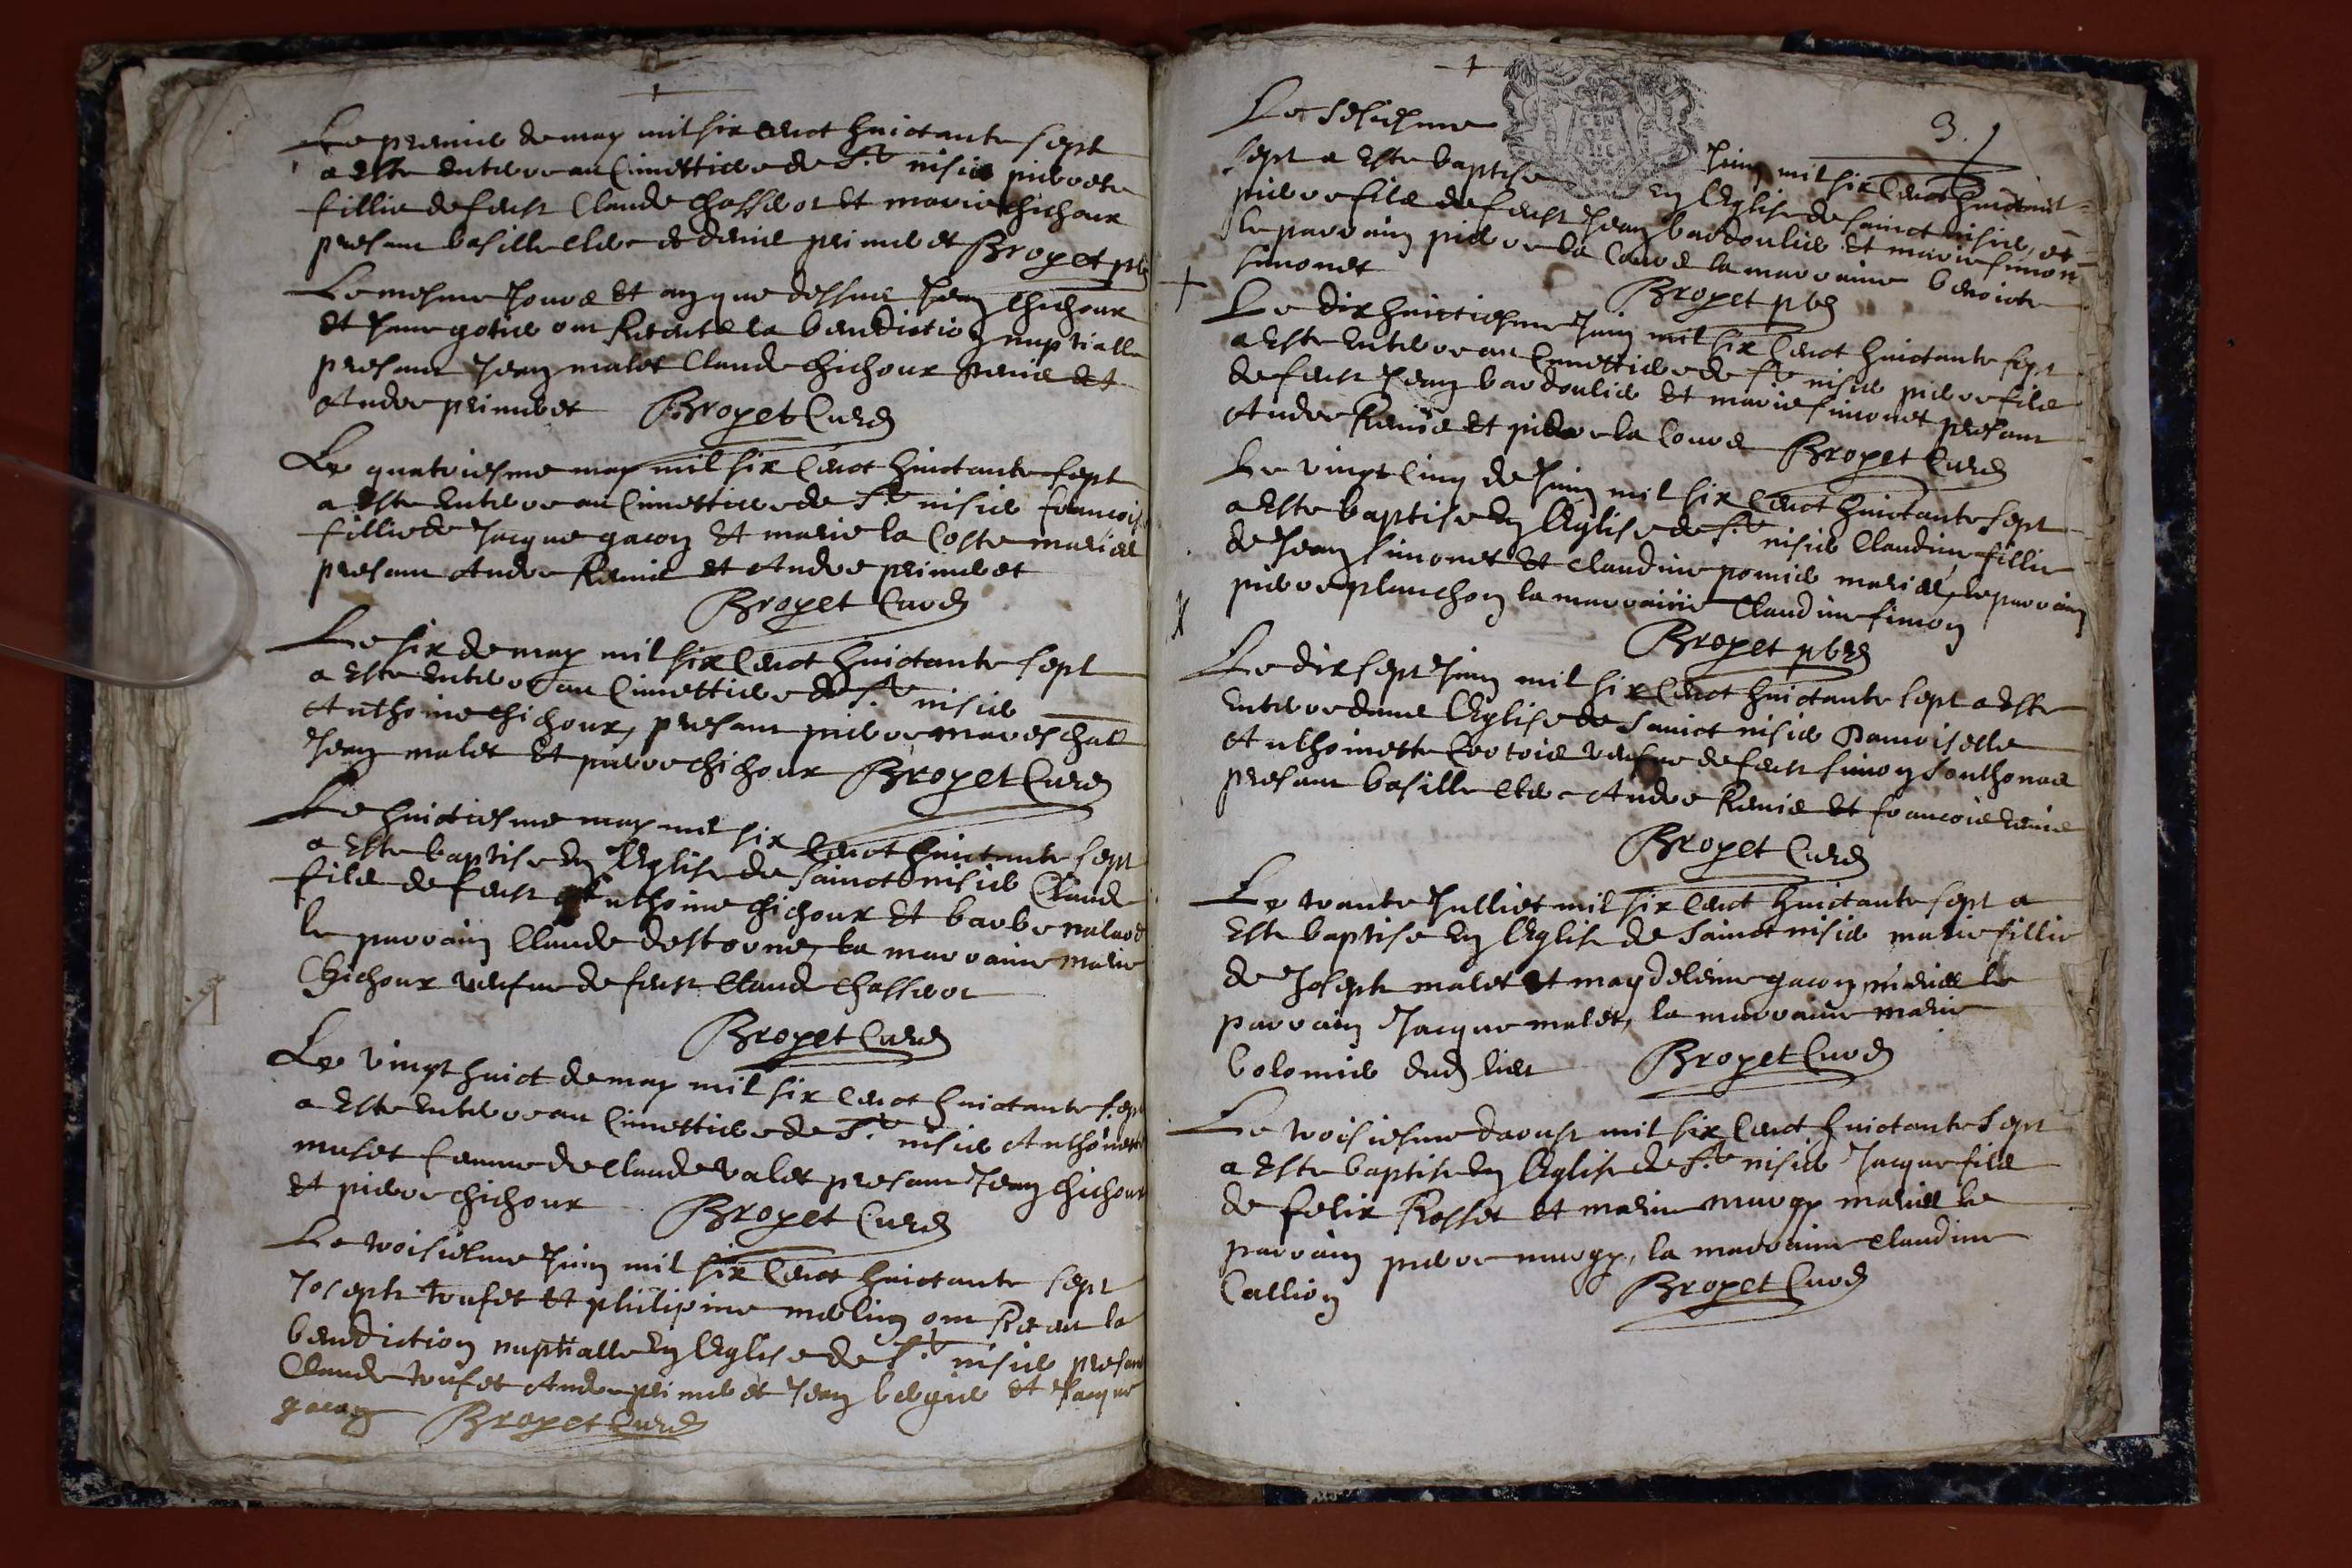 Le premier de may mil six cent huictante sept
a este enterre au Cimettiere de St nisier pierrete
fillie de feust Claude chasserot et marie chichoux
presant basille clerc et denis primbet Broyet pbr
Le mesme Jours et an que dessus Jean chichoux
et Jane gotier ont Receut la benediction nuptialle
presant Jean malet Claude chichoux et
Andre primbet Broyet Curé
Le quatriesme may mil six Cent huictante sept
a este enterre au Cimettiere de St nisier francoise
fillie de Jacque gacon et marie la Coste mariés
presant Andre Renis et Andre primbet
Broyet Curé
Le six de may mil six Cent huictante sept
a este enterre au Cimettiere de St nisier
Anthoine chichoux, presant pierre mareschal
Jean malet et pierre chichoux Broyet Curé
Le huictiesme may mil six Cent huictante sept
a este baptise en l'Eglise de Sainct nisier Claude
fils de feust Anthoine chichoux et barbe
le parrain Claude destorme, la marraine marie
Chichoux vesfue de feust Claude Chasserot
Broyet Curé
Le vingt huict de may mil six Cent huictante sept
a este enterre au Cimettiere de St nisier Anthoinette
muset femme de Claude valet presant Jean chichoux
et pierre chichoux Broyet Curé
Le troisiesme Juin mil six Cent huictante sept
Joseph trufet et philipine merlin ont Receut la
benediction nuptialle en l'Eglise de St nisier presant
Claude trufet Andre primbet Jean bergier et Jacque
gacon Broyet Curé
3.
Le seshiesme Juin mil six Cent huictante
sept a este baptise en l'Eglise de Sainct nisier, et
pierre fils de feust Jean bardoulier et marie simonet
le parrain pierre la Coure la marraine benoicte
simonet Broyet pbr
Le dix huictiesme Juin mil six Cent huictante sept
a este enterre au Cimettiere de St nisier pierre fils
de feust Jean bardoulier et marie simonet presant
Andre Renis et pierre la Coure Broyet Curé
Le vingt Cinq de Juin mil six Cent huictante sept
a este baptise en l'Eglise de St nisier Claudine fillie
de Jean simonet et claudine pomier mariés, le parrain
pierre planchon la marraine Claudine simon
Broyet pbr
Le dix sept Juin mil six Cent huictante sept a este
enterre dans l'Eglise de Sainct nisier Damoiselle
Anthoinette vesfue de feust simon Southonas
presant basille clerc Andre Renis et francois Renis
Broyet Curé
Le trante Julliet mil six Cent huictante sept a
este baptise en l'Eglise de Sainct nisier marie fillie
de Joseph malet et maydeleine gacon mariés le
parrain Jacque malet, la marraine marie
bolomier dud lieu Broyet Curé
Le troisiesme d'aoust mil six Cent huictante sept
a este baptise en l'Eglise de St nisier Jacque fils
de felix Rosset et marie murgy mariés le
parrain pierre murgy, la marraine claudine
Callion Broyet Curé